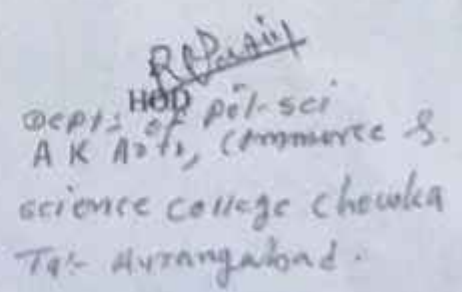 HOD
Dept: of pol-sci
A K Arts, Commerce &
science college Chowka
Tq:- Aurangabad.